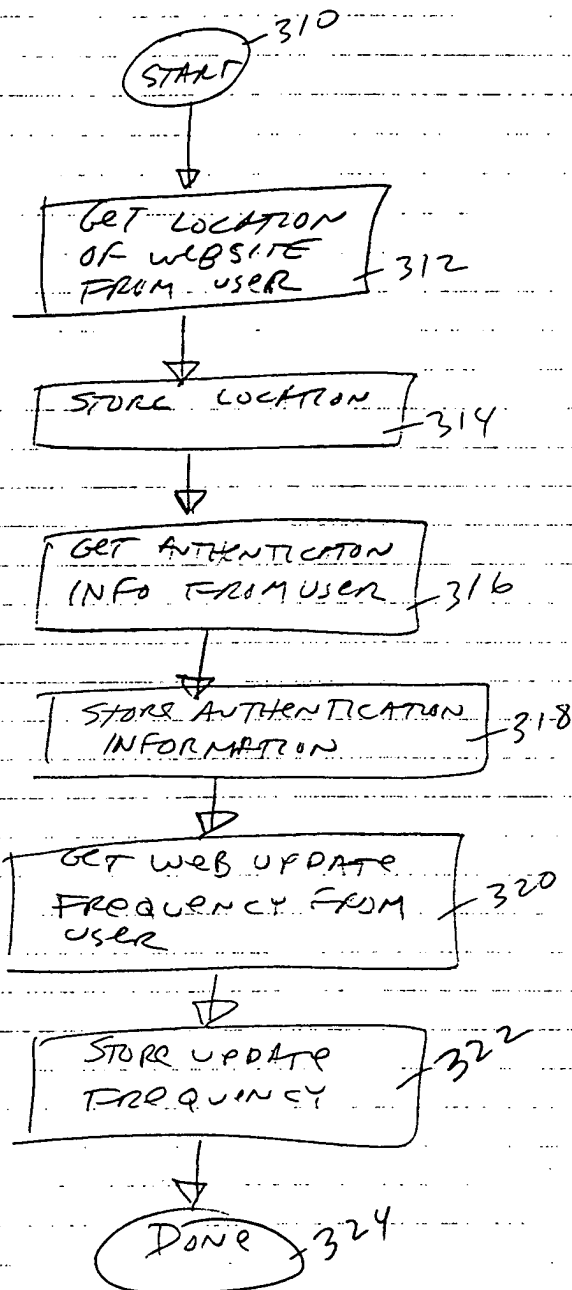 310
START
GET LOCATION
OF WEBSITE
FROM USER
312
STORE LOCATION
314
GET AUTHENTICATON
INFO FROM USER
316
STORE AUTHENTICATION
INFORMATION
318
GET WEB UPDATE
FREQUENCY FROM
USER
320
STORE UPDATE
FREQUENCY
322
DONE
324